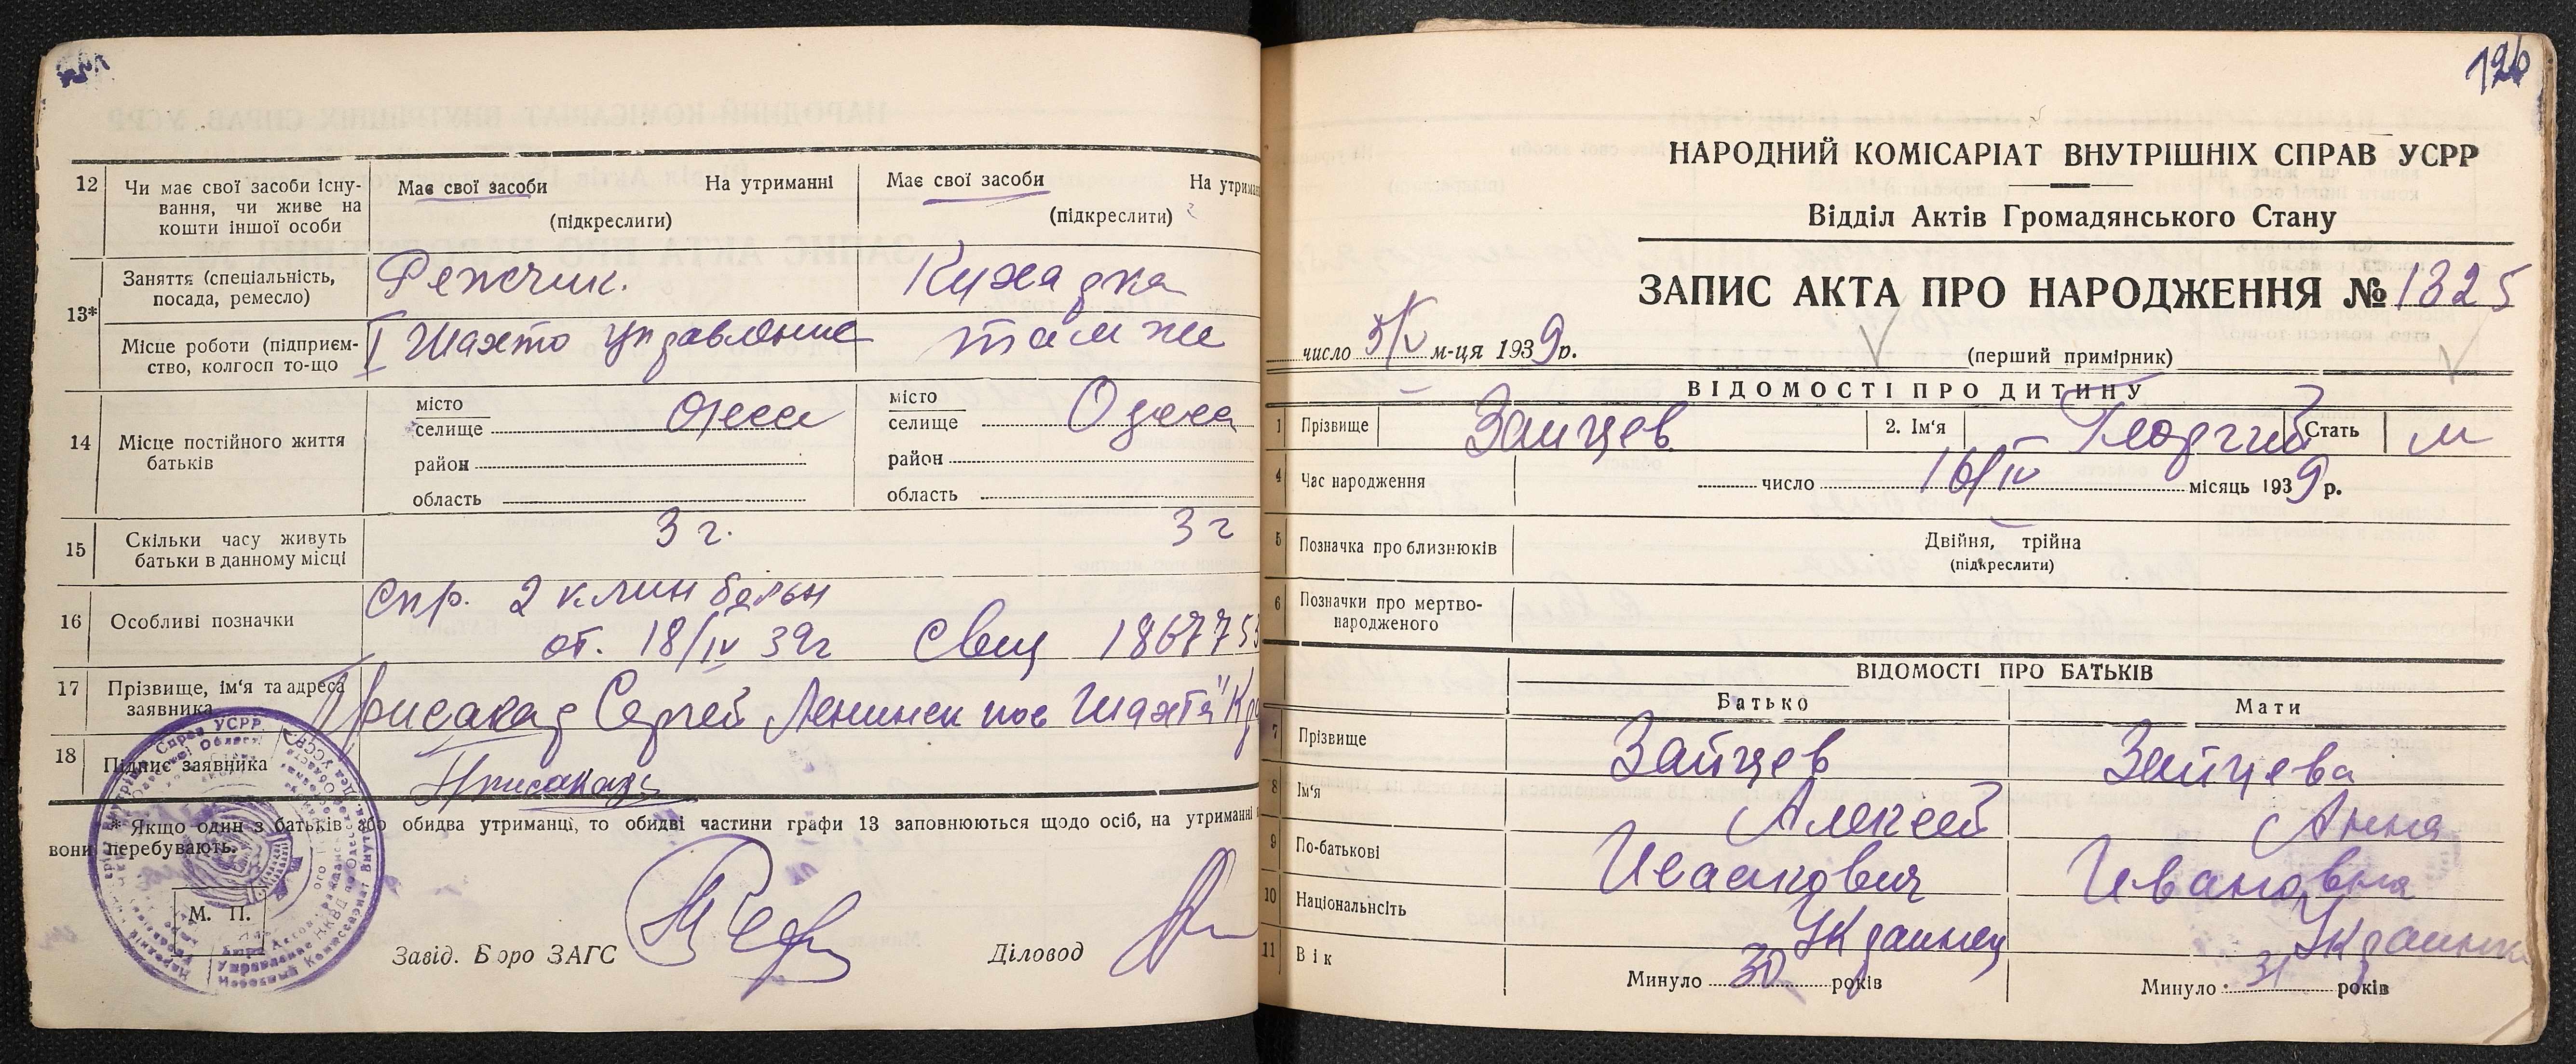 12 Чи має свої засоби існування, чи живе на кошти іншої особи
Має свої засоби На утриманні
(підкреслити)
Має свої засоби На утриман
(підкреслити)
13* Заняття (спеціальність, посада, ремесло)
Режчик.
Кухарка
Місце роботи (підприємство, колгосп то-що
I Шахто управление
там же
14 Місце постійного життя батьків
місто
селище Одесса
район
область
місто
селище Одесса
район
область
15 Скільки часу живуть батьки в данному місці
3 г.
3 г
16 Особливі позначки
Спр. 2 клин больн
от. 18/IV 39г Свид 186775
17 Прізвище, ім'я та адреса заявника
Присакар Сергей Ленинск пос Шахта "Кр
18 Підпис заявника
Присакарь
* Якщо один з батьків або обидва утриманці, то обидві частини графи 13 заповнюються щодо осіб, на утриманні
вони перебувають.
М. П.
Завід. Бюро ЗАГС
Діловод
126
НАРОДНИЙ КОМІСАРІАТ ВНУТРІШНІХ СПРАВ УСРР
Відділ Актів Громадянського Стану
ЗАПИС АКТА ПРО НАРОДЖЕННЯ № 1325
число 5/V м-ця 1939 р.
(перший примірник)
ВІДОМОСТІ ПРО ДИТИНУ
1 Прізвище Зайцев 2. Ім'я Георгий Стать м
4 Час народження число 16/IV місяць 1939 р.
5 Позначка про близнюків Двійня, трійна
(підкреслити)
6 Позначки про мертвонародженого
ВІДОМОСТІ ПРО БАТЬКІВ
Батько Мати
7 Прізвище Зайцев Зайцева
8 Ім'я Алексей Анна
9 По-батькові Исаакович Ивановна
10 Національність Украинец Украинка
11 Вік Минуло 30 років Минуло 31 років